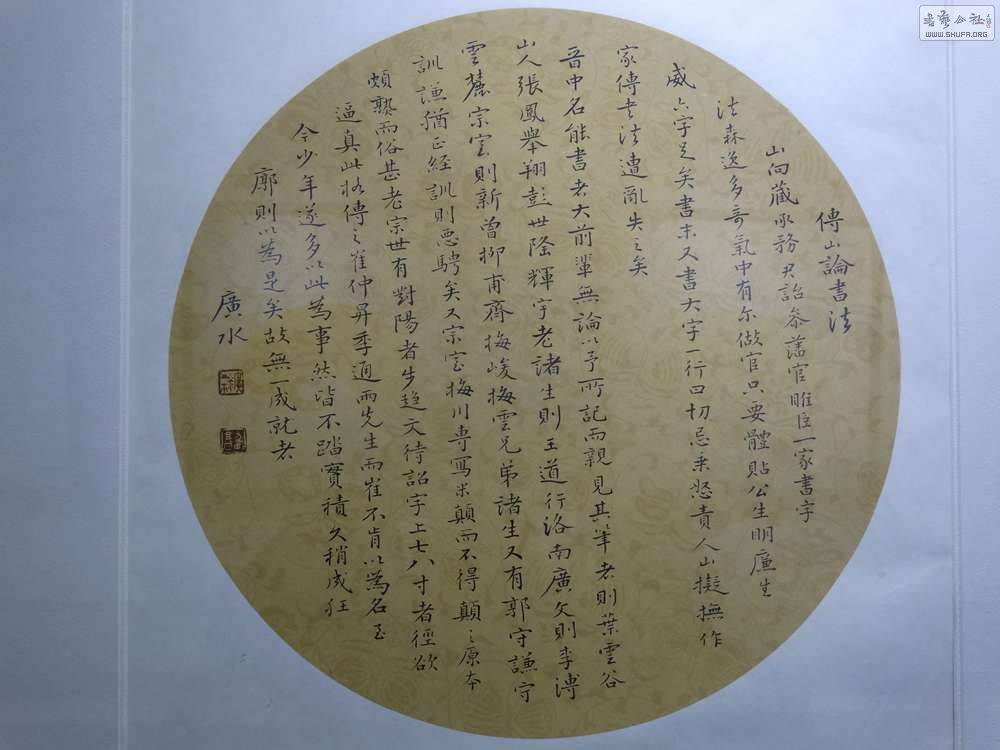 傅山論書法
山向藏承務君詒忝藩官睢臣一家書字
法森逸多奇氣中有尔做官只要體貼公生明廉生
威六字足矣書末又書大字一行曰切忌乘怒責人山擬撫作
家傳書法遭亂失之矣
晋中名能書者大前輩無論以予所記而親見其筆者則葉雲谷
山人張鳳舉翔彭世隆輝宇老諸生則王道行洛南廣文則李溥
雲麓宗室則新曾柳甫齋梅峻梅雲兄弟諸生又有郭守謙守
訓謙猶正經訓則惡騁矣又宗室梅川専寫米顛而不得顛之原本
頗熟而俗甚老宗世有對陽者步趋文待詔字上七八寸者徑欲
逼真此擬傳之崔仲昇季通兩先生而崔不肯以爲名至
今少年遂多以此為事然皆不踏實積久稍成狂
廓則以為是矣故無一成就者
廣水
書藝公社
WWW.SHUFA.ORG